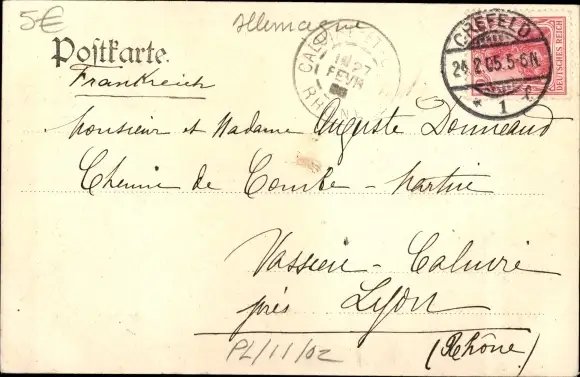 5€
Allemagne
Postkarte.
Frankreich
CREFELD
24.2.05.5-6N
* 1 f
DEUTSCHES REICH
CAL
27
FEVR
RH
Monsieur et Madame Auguste Donneaud
Chemin de Combe-Martin
Vassieu-Caluire
près Lyon
(Rhône)
PL/11/02